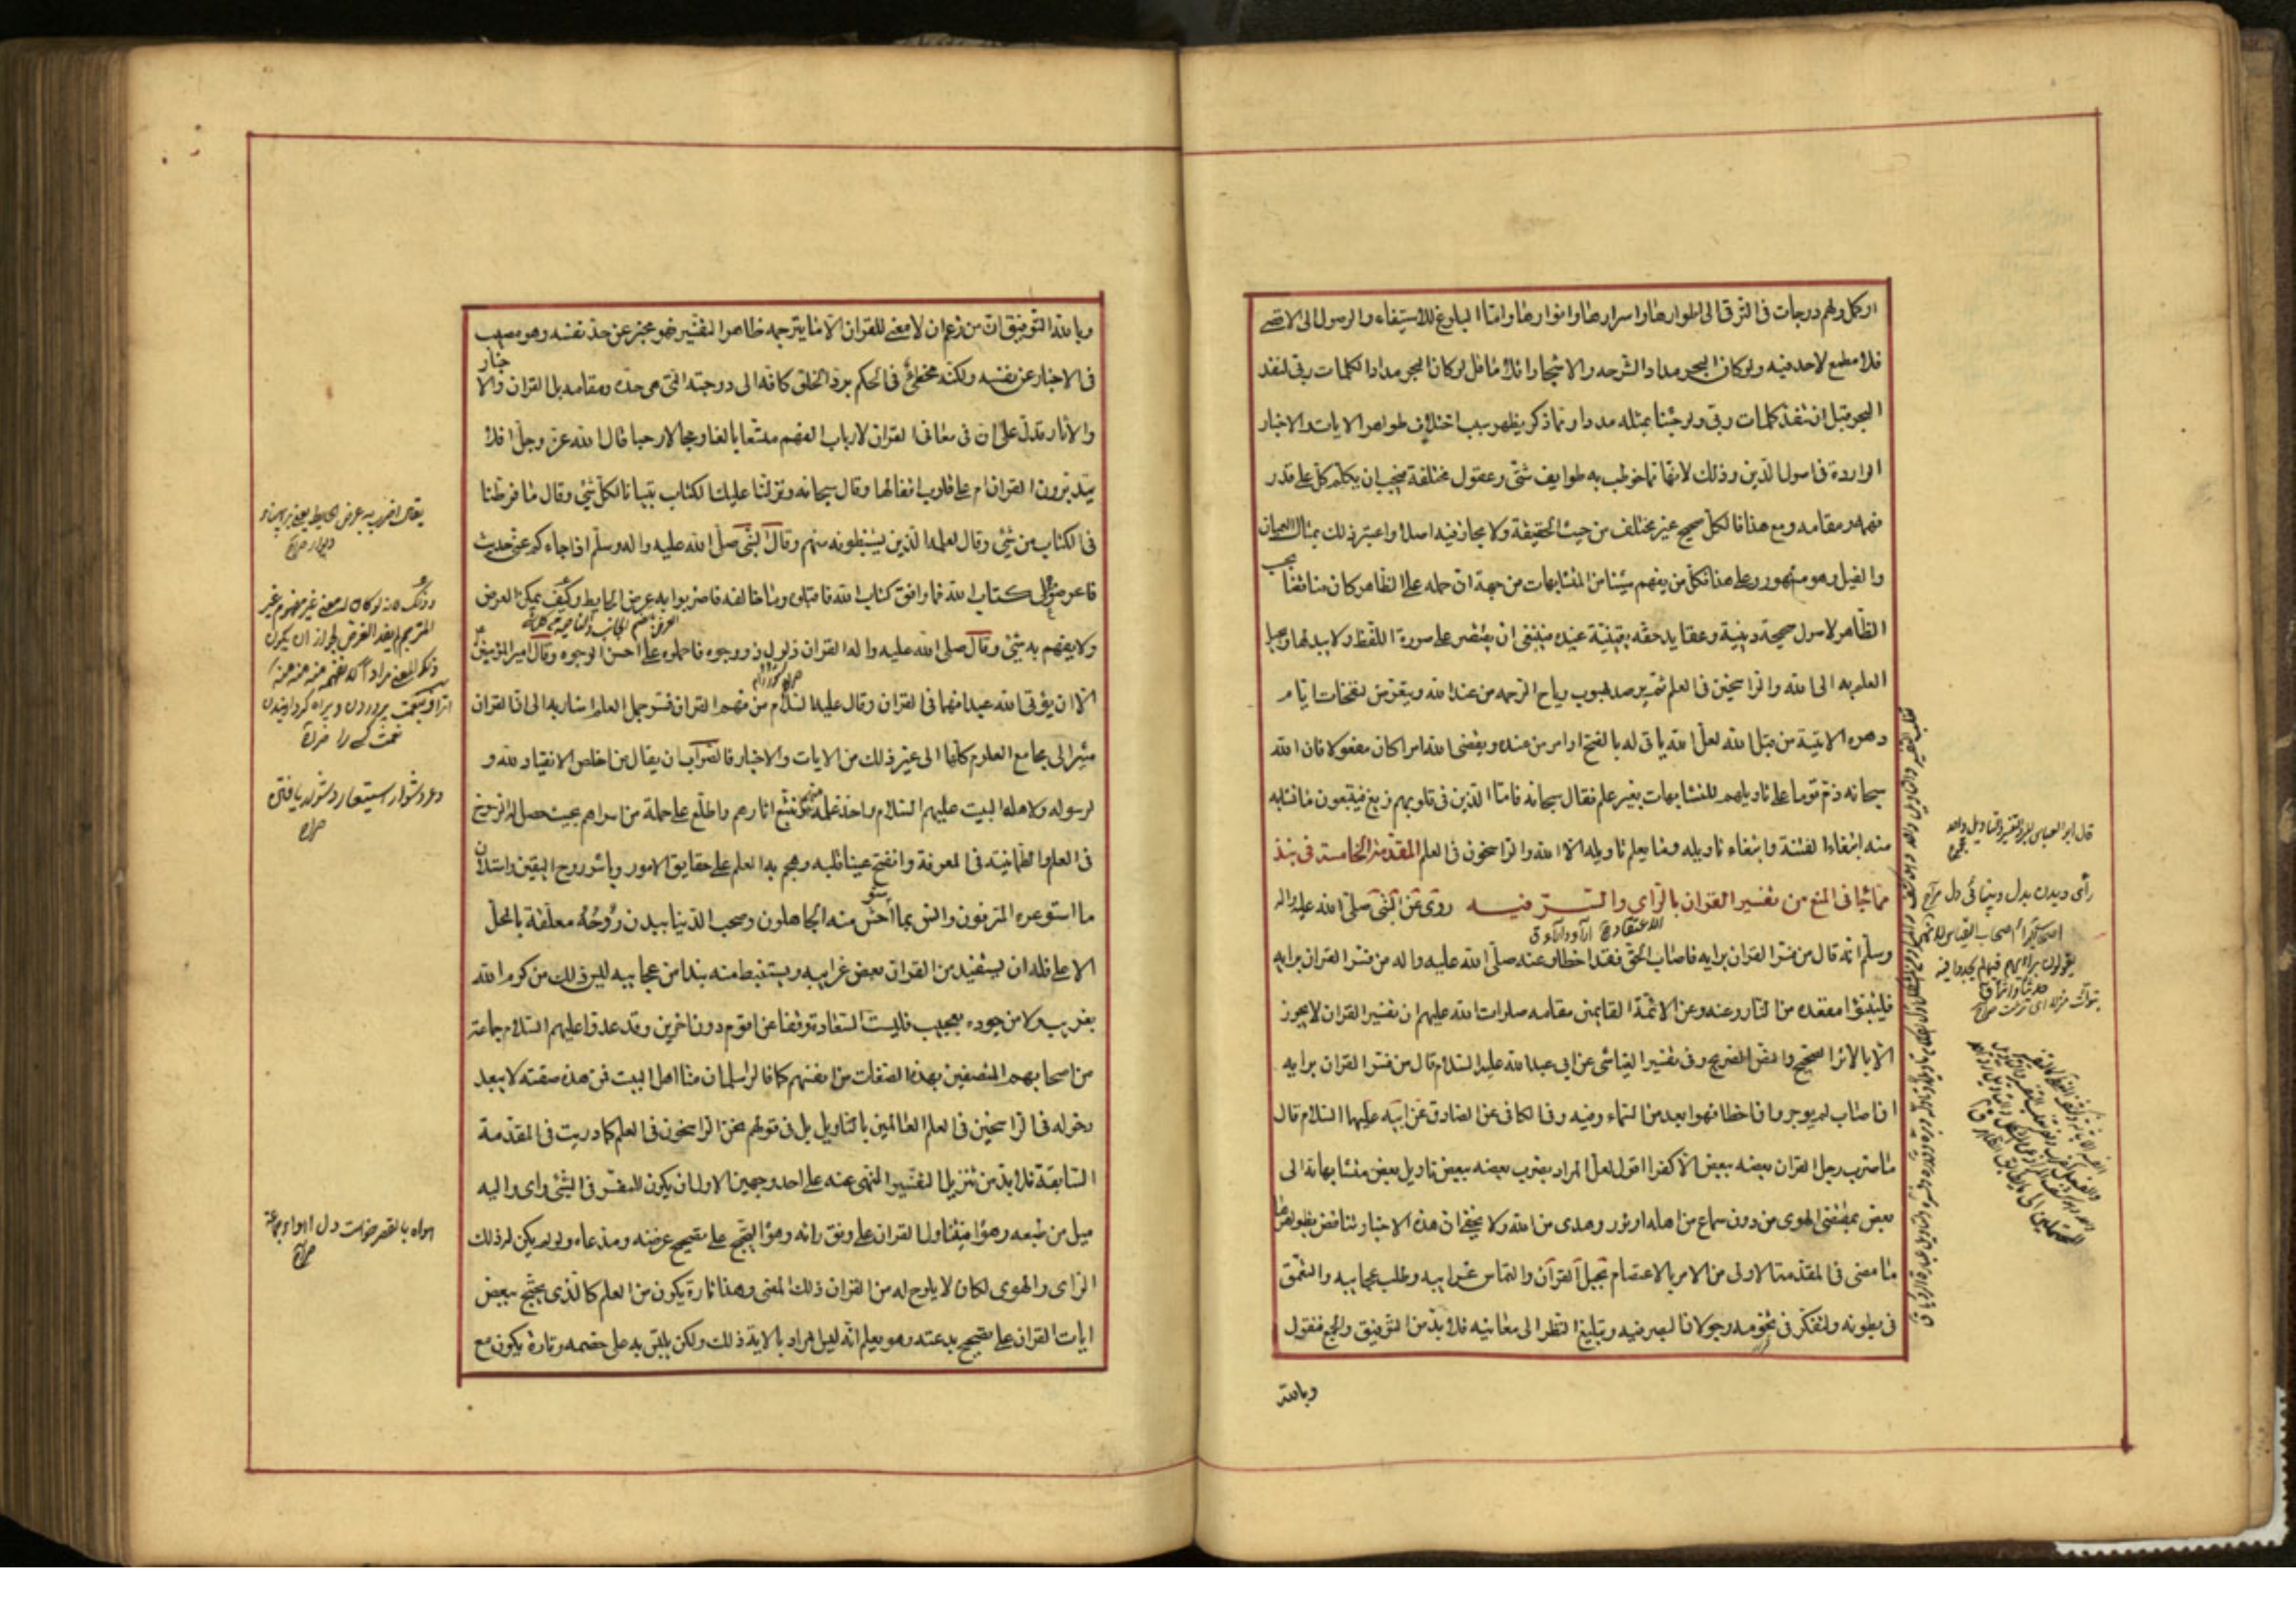 او كل ولهم درجات فى الترقى الى اطوارها واسرارها وانوارها واما البلوغ للاستيفاء والوصول الى الاقصى
فلا مطمع لاحد فيه ولو كان البحر مدادا لشرحه والاشجار اقلاما قل لو كان البحر مدادا لكلمات ربى لنفد
البحر قبل ان تنفد كلمات ربى ولو جئنا بمثله مددا ومما ذكر يظهر سبب اختلاف ظواهر الايات والاخبار
الواردة فى اصول الدين وذلك لانها مما خوطب به طوايف شتى وعقول مختلفة فيجب ان يكلم كل على قدر
فهمه ومقامه ومع هذا فالكل صحيح غير مختلف من حيث الحقيقة ولا مجاز فيه اصلا واعتبر ذلك بمثال العميان
والفيل وهو مشهور وعلى هذا فكل من يفهم شيئا من المتشابهات من جهة ان حمله على الظاهر كان مناقضا بحسب
الظاهر لاصول صحيحة دينية وعقايد حقه يقينية عنده فينبغى ان يقتصر على صورة اللفظ ولا يبدلها ويحيل
العلم به الى الله والراسخين فى العلم ثم يرصد لهبوب رياح الرحمة من عند الله ويتعرض لنفحات ايام
دهره الاتية من قبل الله لعل الله ياتى له بالفتح او امر من عنده ويقضى الله امرا كان مفعولا فان الله
سبحانه ذم قوما على تاويلهم المتشابهات بغير علم فقال سبحانه فاما الذين فى قلوبهم زيغ فيتبعون ما تشابه
منه ابتغاء الفتنة وابتغاء تاويله وما يعلم تاويله الا الله والراسخون فى العلم المقدمة الخامسة فى نبذ
مما جاء فى المنع من تفسير القران بالراى والسر فيه روى عن النبى صلى الله عليه واله
وسلم انه قال من فسر القران برايه فاصاب الحق فقد اخطا وعنه صلى الله عليه واله من فسر القران برايه
فليتبوأ مقعده من النار وعنه وعن الائمة القايمين مقامه صلوات الله عليهم ان تفسير القران لا يجوز
الا بالاثر الصحيح والنص الصريح وفى تفسير العياشى عن ابى عبد الله عليه السلام قال من فسر القران برايه
ان اصاب لم يوجر وان اخطا فهو ابعد من السماء وفيه وفى الكافى عن الصادق عن ابيه عليهما السلام قال
ما ضرب رجل القران بعضه ببعض الا كفر اقول لعل المراد بضرب بعضه ببعض تاويل بعض متشابهاته الى
بعض بمقتضى الهوى من دون سماع من اهله او نور وهدى من الله ولا يخفى ان هذه الاخبار تناقض بظواهرها
ما مضى فى المقدمة الاولى من الامر بالاعتصام بحبل القرآن والتماس غرايبه وطلب عجايبه والتعمق
فى بطونه والتفكر فى تخومه وجولان البصر فيه وتبليغ النظر الى معانيه فلا بد من التوفيق والجمع فنقول
وبالله
راى ديدن بدل وبينائى دل صراح
وبالله التوفيق ان من زعم ان لا معنى للقران الا ما يترجمه ظاهر التفسير فهو مخبر عن حد نفسه وهو مصيب
فى الاخبار عن نفسه ولكنه مخطئ فى الحكم برد الخلق كافة الى درجته التى هى حده ومقامه بل القران والاخبار
والاثار تدل على ان فى معانى القران لارباب الفهم متسعا بالغا ومجالا رحبا قال الله عز وجل افلا
يتدبرون القران ام على قلوب اقفالها وقال سبحانه ونزلنا عليك الكتاب تبيانا لكل شئ وقال ما فرطنا
فى الكتاب من شئ وقال لعلمه الذين يستنبطونه منهم وقال النبى صلى الله عليه واله وسلم اذا جاءكم عنى حديث
فاعرضوه على كتاب الله فما وافق كتاب الله فاقبلوه وما خالفه فاضربوا به عرض الحايط وكيف يمكن العرض
ولا يفهم به شئ وقال صلى الله عليه واله القران ذلول ذو وجوه فاحملوه على احسن الوجوه وقال امير المؤمنين
الا ان يؤتى الله عبدا فهما فى القران وقال عليه السلام من فهم القران فسر جمل العلم اشار به الى ان القران
مشير الى مجامع العلوم كلها الى غير ذلك من الايات والاخبار فالصواب ان يقال من اخلص الانقياد لله و
لرسوله ولاهل البيت عليهم السلام واخذ علمه منهم وتتبع اثارهم واطلع على جملة من اسرارهم بحيث حصل له الرسوخ
فى العلم والطمانينه فى المعرفة وانفتح عينا قلبه وهجم به العلم على حقايق الامور وباشر روح اليقين واستلان
ما استوعره المترفون وانس بما استوحش منه الجاهلون وصحب الدنيا ببدن روحه معلقة بالمحل
الاعلى فله ان يستفيد من القران بعض غرايبه ويستنبط منه نبذا من عجايبه ليس ذلك من كرم الله
بغريب ولا من جوده بعجيب فليست السعادة وقفا على قوم دون اخرين وقد عدوا عليهم السلام جماعة
من اصحابهم المتصفين بهذه الصفات من انفسهم كما قالوا سلمان منا اهل البيت فمن هذه صفته لا يبعد
دخوله فى الراسخين فى العلم العالمين بالتاويل بل فى قولهم نحن الراسخون فى العلم كما دريت فى المقدمة
السابقة فلا بد من تنزيل التفسير المنهى عنه على احد وجهين الاول ان يكون للمفسر فى الشئ راى واليه
ميل من طبعه وهواه فيتاول القران على وفق رائه وهواه ليحتج على تصحيح غرضه ومدعاه ولو لم يكن له ذلك
الراى والهوى لكان لا يلوح له من القران ذلك المعنى وهذا تارة يكون من العلم كالذى يحتج ببعض
ايات القران على تصحيح بدعته وهو يعلم انه ليس المراد بالاية ذلك ولكن يلبس به على خصمه وتارة يكون مع
يقال اضرب به عرض الحايط
دعر دشوار استيعار دشوار يافتن
صراح